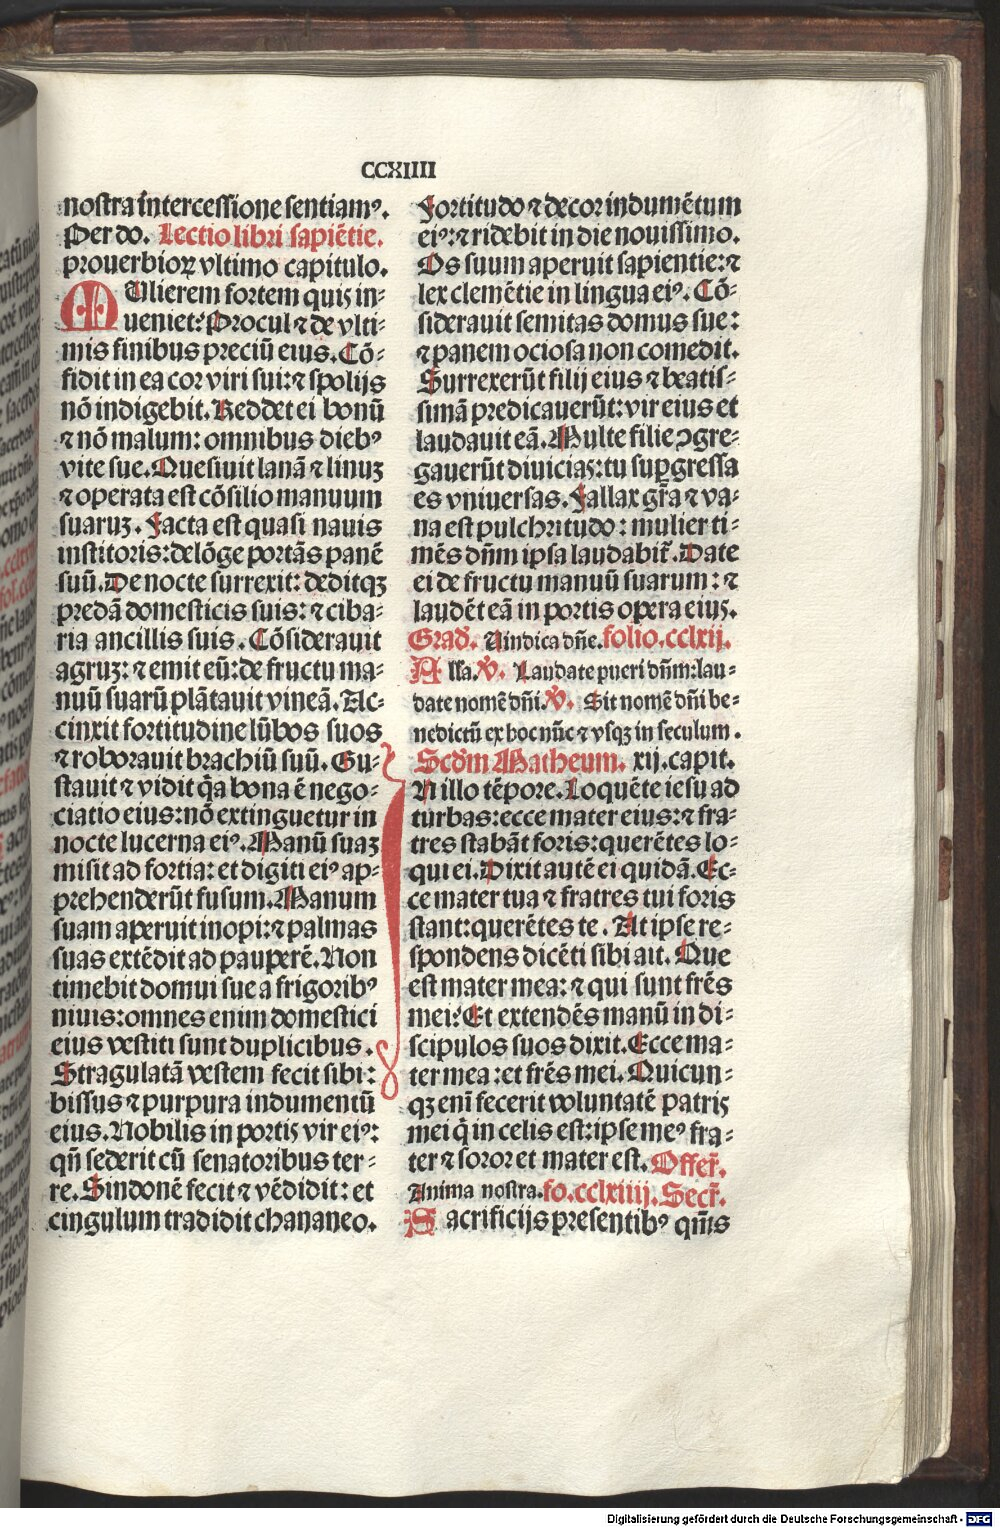 CCXIIII
nostra intercessione sentiamꝰ.
Per do. Lectio libri sapiẽtie.
prouerbioꝝ vltimo capitulo.
MUlierem fortem quis in-
ueniet? Procul ⁊ de vlti-
mis finibus preciũ eius. Cõ-
fidit in ea cor viri sui: ⁊ spolijs
nõ indigebit. Reddet ei bonũ
⁊ nõ malum: omnibus diebꝰ
vite sue. Quesiuit lanã ⁊ linuꝫ
⁊ operata est cõsilio manuum
suaruꝫ. Facta est quasi nauis
institoris: de lõge portãs panẽ
suũ. De nocte surrexit: deditqꝫ
predã domesticis suis: ⁊ ciba-
ria ancillis suis. Cõsiderauit
agruꝫ: ⁊ emit eũ: de fructu ma-
nuũ suarũ plãtauit vineã. Ac-
cinxit fortitudine lũbos suos
⁊ roborauit brachiũ suũ. Gu-
stauit ⁊ vidit q̃a bona ẽ nego-
ciatio eius: nõ extinguetur in
nocte lucerna eiꝰ. Manũ suaꝫ
misit ad fortia: et digiti eiꝰ ap-
prehenderũt fusum. Manum
suam aperuit inopi: ⁊ palmas
suas extẽdit ad pauperẽ. Non
timebit domui sue a frigoribꝰ
niuis: omnes enim domestici
eius vestiti sunt duplicibus.
Stragulatã vestem fecit sibi:
bissus ⁊ purpura indumentũ
eius. Nobilis in portis vir eiꝰ:
qñ sederit cũ senatoribus ter-
re. Sindonẽ fecit ⁊ vẽdidit: et
cingulum tradidit chananeo.
Fortitudo ⁊ decor indumẽtum
eiꝰ: ⁊ ridebit in die nouissimo.
Os suum aperuit sapientie: ⁊
lex clemẽtie in lingua eiꝰ. Cõ-
siderauit semitas domus sue:
⁊ panem ociosa non comedit.
Surrexerũt filij eius ⁊ beatis-
simã predicauerũt: vir eius et
laudauit eã. Multe filie ꝯgre-
gauerũt diuicias: tu suꝑgressa
es vniuersas. Fallax gr̃a ⁊ va-
na est pulchritudo: mulier ti-
mẽs dñm ipsa laudabit̃. Date
ei de fructu manuũ suarum: ⁊
laudẽt eã in portis opera eius.
Grad̃. Uindica dñe. folio. cclxij.
Alla. ℣. Laudate pueri dñm: lau-
date nomẽ dñi. ℣. Sit nomẽ dñi be-
nedictũ ex hoc nũc ⁊ vsqꝫ in seculum.
Scd̃m Matheum. xij. capit.
IN illo tẽpore. Loquẽte iesu ad
turbas: ecce mater eius: ⁊ fra-
tres stabãt foris: querẽtes lo-
qui ei. Dixit autẽ ei quidã. Ec-
ce mater tua ⁊ fratres tui foris
stant: querẽtes te. At ipse re-
spondens dicẽti sibi ait. Que
est mater mea: ⁊ qui sunt frẽs
mei? Et extendẽs manũ in di-
scipulos suos dixit. Ecce ma-
ter mea: et frẽs mei. Quicun-
qꝫ enĩ fecerit voluntatẽ patris
mei q̃ in celis est: ipse meꝰ fra-
ter ⁊ soror et mater est. Offer̃.
Anima nostra. fo. cclxiiij. Secr̃.
Sacrificijs presentibꝰ qm̃s
Digitalisierung gefördert durch die Deutsche Forschungsgemeinschaft - DFG